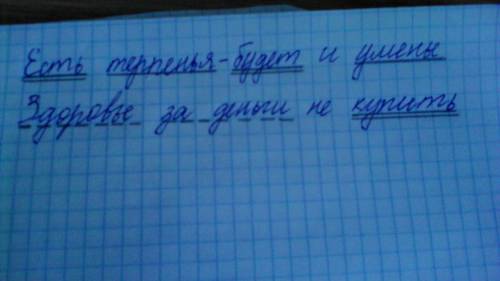 Есть терпенья-будет и умены
Здоровье за деньги не купить